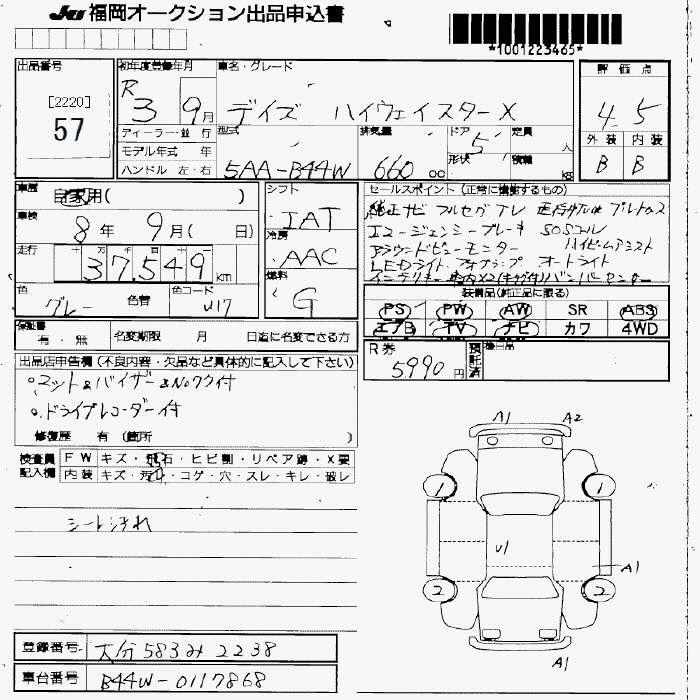 JU 福岡オークション出品申込書
*1001223465*
出品番号
[2220]
57
初年度登録年月
R 3 9月
車名・グレード
デイズ ハイウェイスターX
評価点
4.5
外装 内装
B B
ディーラー・並行
モデル年式 年
ハンドル 左・右
型式
5AA-B44W
排気量
660 cc
ドア
5
形状
定員
人
積載
kg
車歴
自家用( )
車検
8年 9月( 日)
走行
十 万 千 百 十 一
37,549 km
色
グレー
色替
色コード
シフト
IAT
冷房
AAC
燃料
G
セールスポイント(正常に機能するもの)
純正ナビ フルセグTV
エマージェンシーブレーキ SOSコール
アラウンドビューモニター ハイビームアシスト
LEDライト フォグランプ オートライト
装備品(純正品に限る)
PS PW AW SR ABS
エアB TV ナビ カワ 4WD
保証書
有・無
名変期限 月 日迄に名変できる方
R券
5,990円
預託済
後日品
出品店申告欄(不良内容・欠品など具体的に記入して下さい)
。マット&バイザー&Noワク付
。ドライブレコーダー付
修復歴 有(箇所 )
検査員記入欄
FW キズ・飛石・ヒビ割・リペア跡・X要
内装 キズ・汚れ・コゲ・穴・スレ・キレ・破レ
シート汚れ
A1 A2
1 1
U1
A1
2 2
A1
登録番号
大分 583 み 2238
車台番号
B44W-0117868